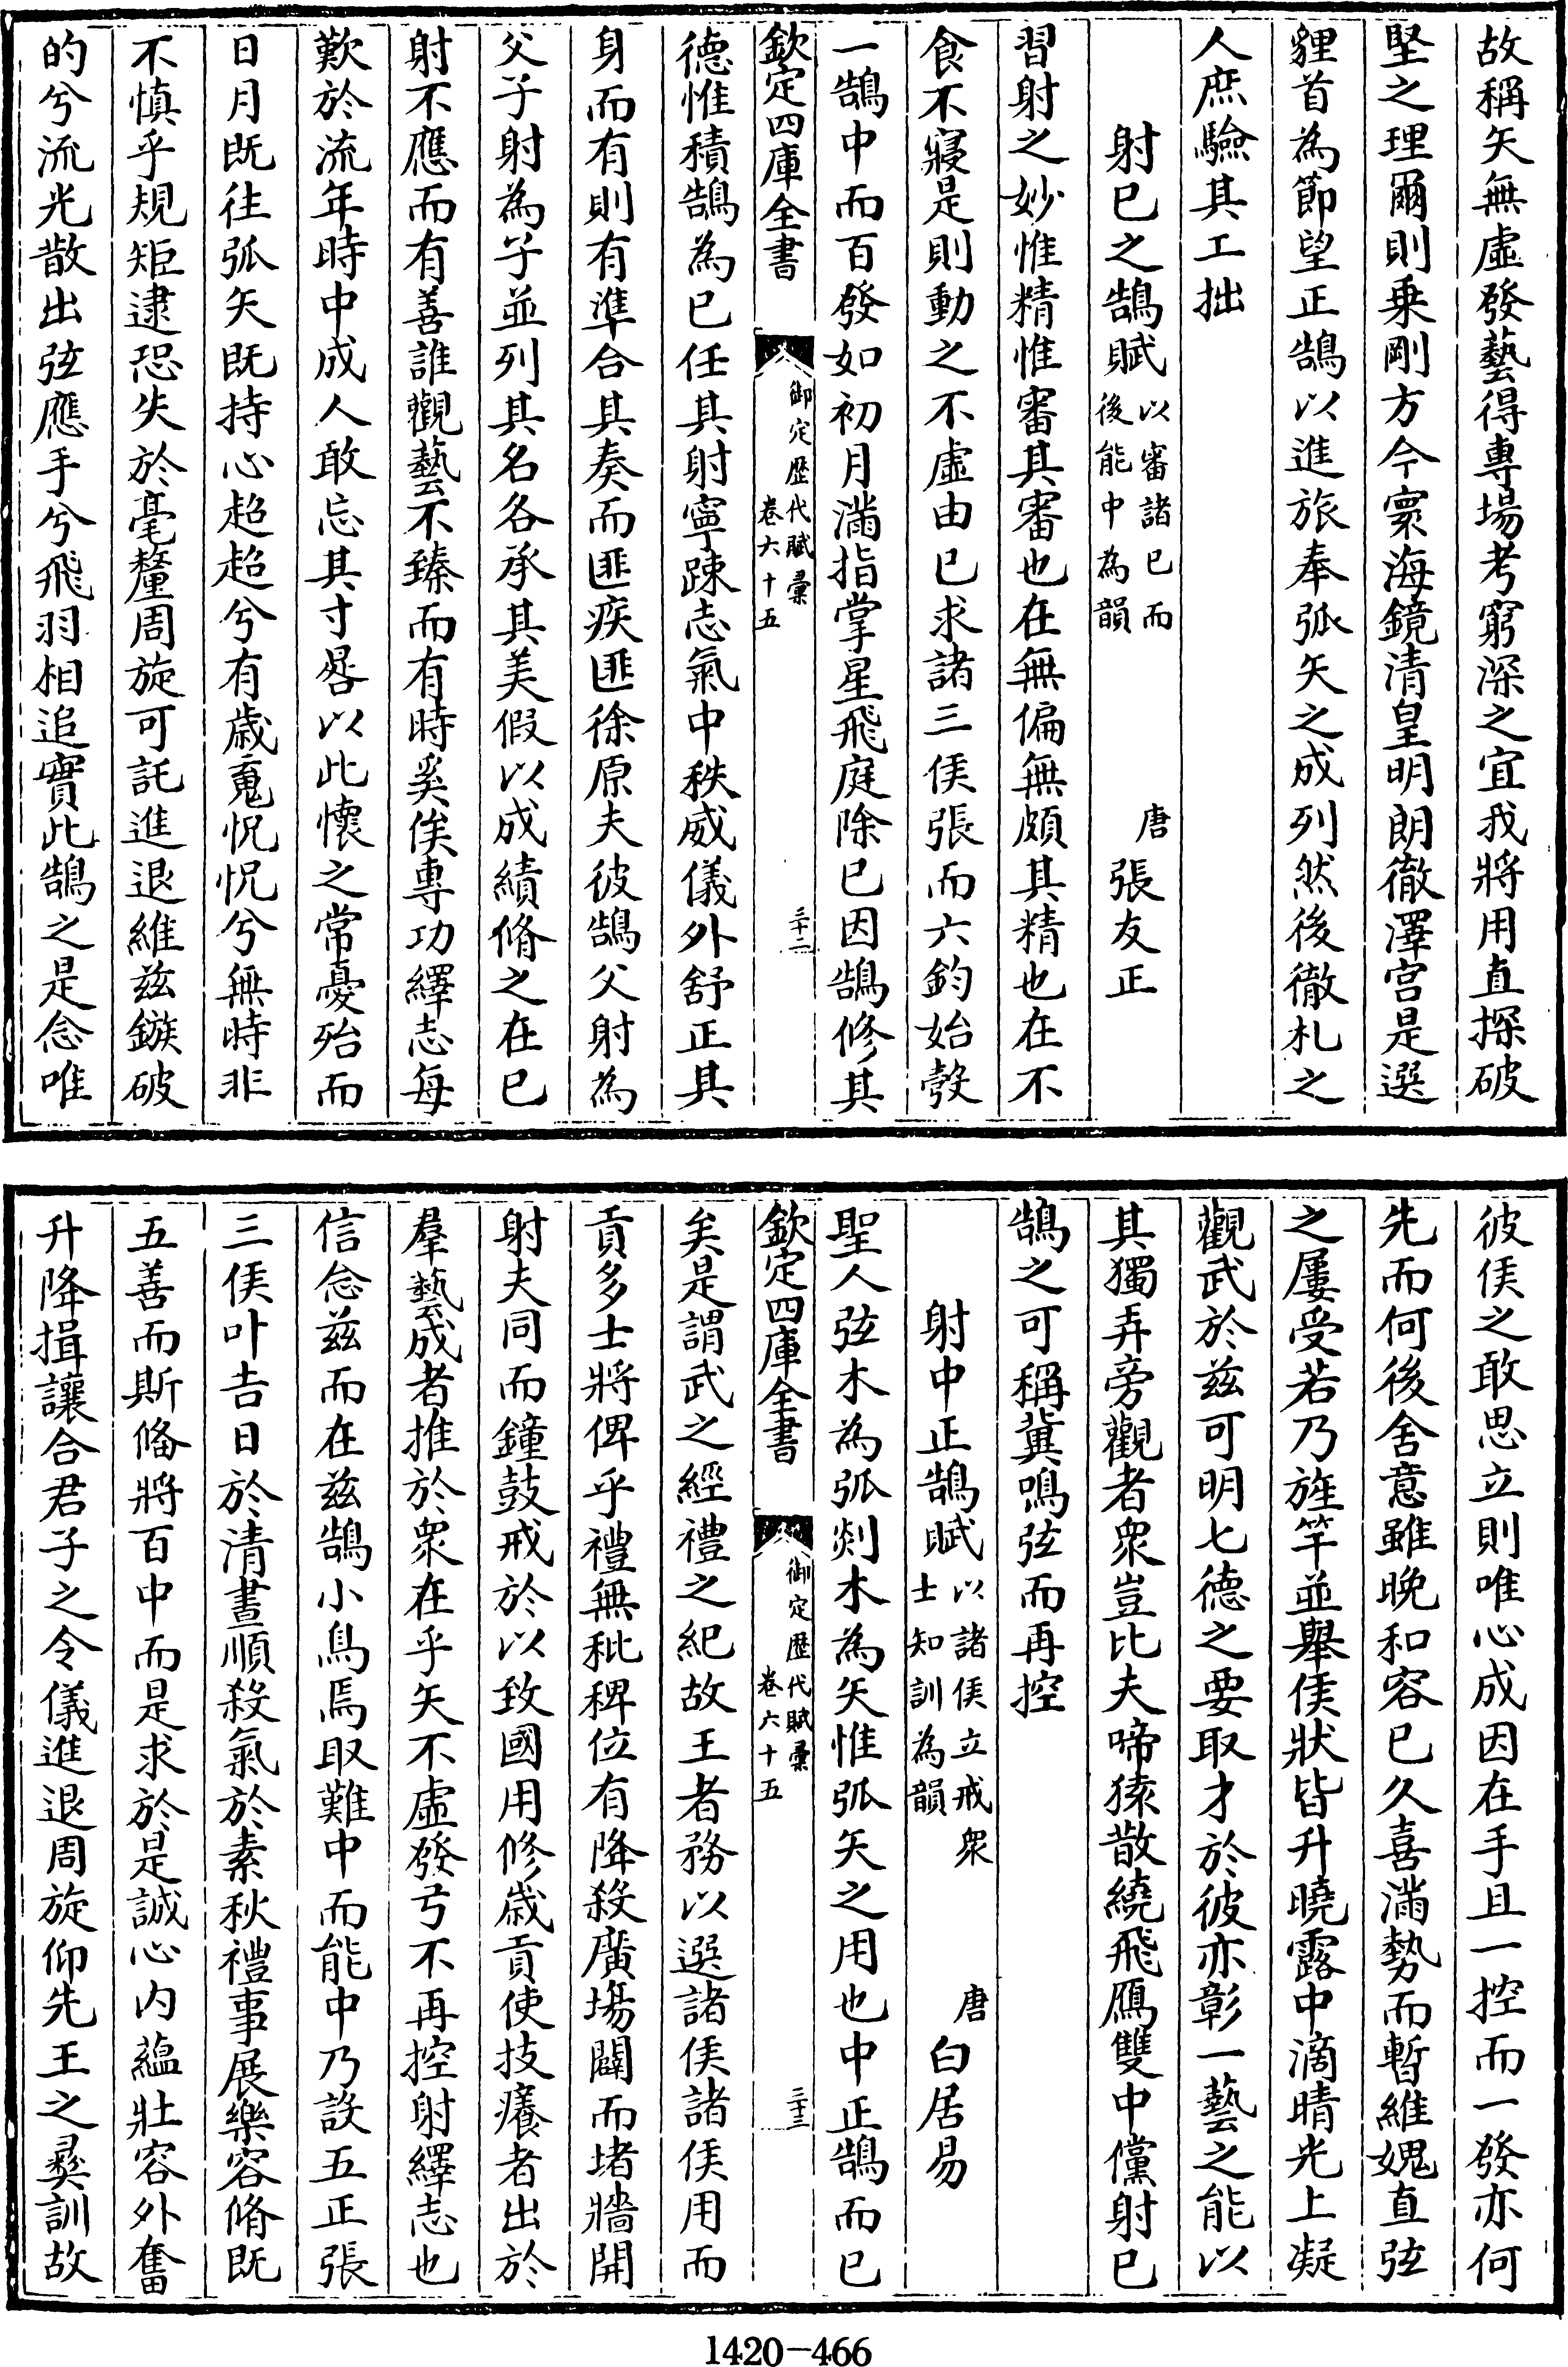 故稱矢無虛發藝得專場考窮深之宜我將用直探破
堅之理爾則乗剛方今寰海鏡清皇明朗徹澤宫是選
貍首為節望正鵠以進旅奉弧矢之成列然後徹札之
人庶驗其工拙
射已之鵠賦以審諸已而後能中為韻 唐張友正
習射之妙惟精惟審其審也在無偏無頗其精也在不
食不寢是則動之不虛由已求諸三侯張而六鈞始彀
一鵠中而百發如初月滿指掌星飛庭除已因鵠修其
欽定四庫全書 御定歴代賦彙卷六十五 三十二
德惟積鵠為已任其射寧踈志氣中秩威儀外舒正其
身而有則有準合其奏而匪疾匪徐原夫彼鵠父射為
父子射為子並列其名各承其美假以成績脩之在已
射不應而有善誰觀藝不臻而有時奚俟專功繹志每
歎於流年時中成人敢忘其寸晷以此懷之常憂殆而
日月既往弧矢既持心超超兮有歳䰟怳怳兮無時非
不慎乎規矩逮恐失於毫釐周旋可託進退維兹鏃破
的兮流光散出弦應手兮飛羽相追實此鵠之是念唯
彼侯之敢思立則唯心成因在手且一控而一發亦何
先而何後舍意雖晚和容已久喜滿勢而暫維媿直弦
之屢受若乃旌竿並舉侯狀皆升曉露中滴晴光上凝
觀武於兹可明七德之要取才於彼亦彰一藝之能以
其獨弄旁觀者衆豈比夫啼猿散繞飛鴈雙中儻射已
鵠之可稱冀鳴弦而再控
射中正鵠賦以諸侯立戒衆士知訓為韻 唐白居易
聖人弦木為弧剡木為矢惟弧矢之用也中正鵠而已
欽定四庫全書 御定歴代賦彙卷六十五 三十三
矣是謂武之經禮之紀故王者務以選諸侯諸侯用而
貢多士將俾乎禮無秕稗位有降殺廣塲闢而堵牆開
射夫同而鐘鼓戒於以致國用修歳貢使技癢者出於
羣藝成者推於衆在乎矢不虛發弓不再控射繹志也
信念兹而在兹鵠小鳥焉取難中而能中乃設五正張
三侯叶吉日於清晝順殺氣於素秋禮事展樂容脩既
五善而斯俻將百中而是求於是誠心内藴壯容外奮
升降揖讓合君子之令儀進退周旋仰先王之彛訓故
1420-466